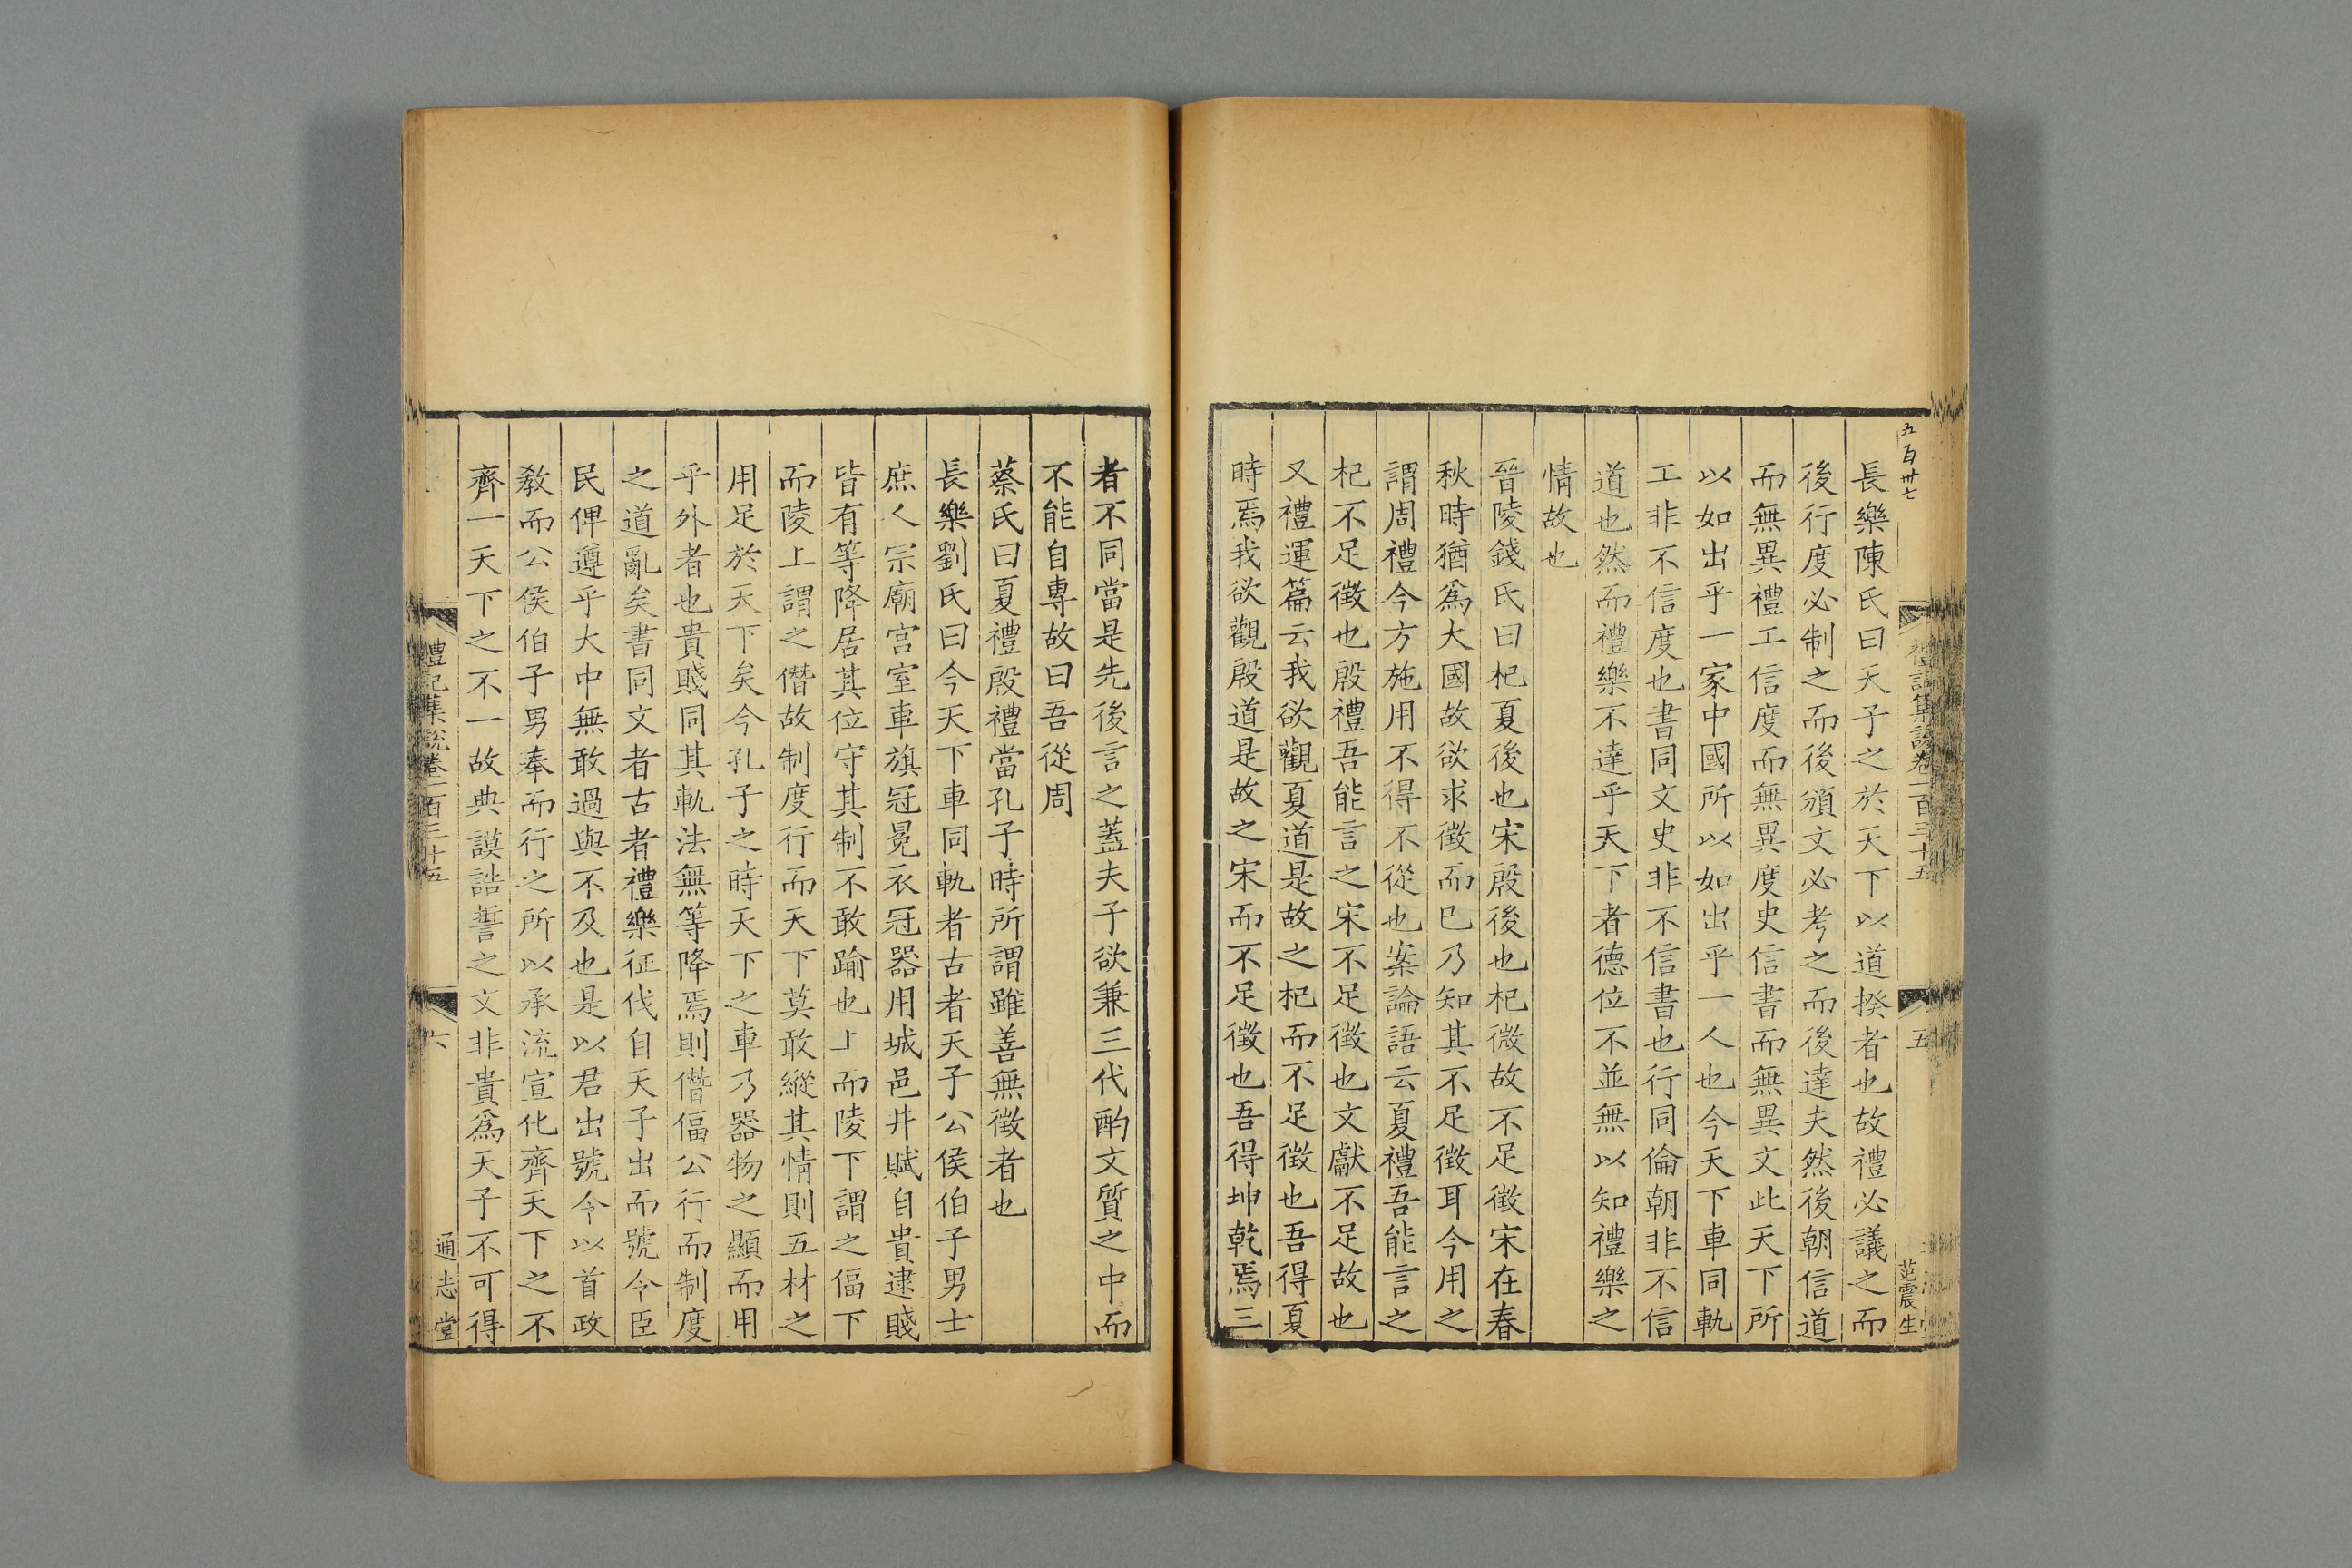 五百卅七
禮記集說卷一百三十五
五
范震生
長樂陳氏曰天子之於天下以道揆者也故禮必議之而
後行度必制之而後頒文必考之而後達夫然後朝信道
而無異禮工信度而無異度史信書而無異文此天下所
以如出乎一家中國所以如出乎一人也今天下車同軌
工非不信度也書同文史非不信書也行同倫朝非不信
道也然而禮樂不達乎天下者德位不並無以知禮樂之
情故也
晉陵錢氏曰杞夏後也宋殷後也杞微故不足徵宋在春
秋時猶爲大國故欲求徵而巳乃知其不足徵耳今用之
謂周禮今方施用不得不從也案論語云夏禮吾能言之
杞不足徵也殷禮吾能言之宋不足徵也文獻不足故也
又禮運篇云我欲觀夏道是故之杞而不足徵也吾得夏
時焉我欲觀殷道是故之宋而不足徵也吾得坤乾焉三
者不同當是先後言之蓋夫子欲兼三代酌文質之中而
不能自專故曰吾從周
蔡氏曰夏禮殷禮當孔子時所謂雖善無徵者也
長樂劉氏曰今天下車同軌者古者天子公侯伯子男士
庶人宗廟宮室車旗冠冕衣冠器用城邑井賦自貴逮賤
皆有等降居其位守其制不敢踰也上而陵下謂之偪下
而陵上謂之僭故制度行而天下莫敢縱其情則五材之
用足於天下矣今孔子之時天下之車乃器物之顯而用
乎外者也貴賤同其軌法無等降焉則僭偪公行而制度
之道亂矣書同文者古者禮樂征伐自天子出而號令臣
民俾遵乎大中無敢過與不及也是以君出號令以首政
敎而公侯伯子男奉而行之所以承流宣化齊天下之不
齊一天下之不一故典謨誥誓之文非貴爲天子不可得
禮記集說卷一百三十五
六
通志堂